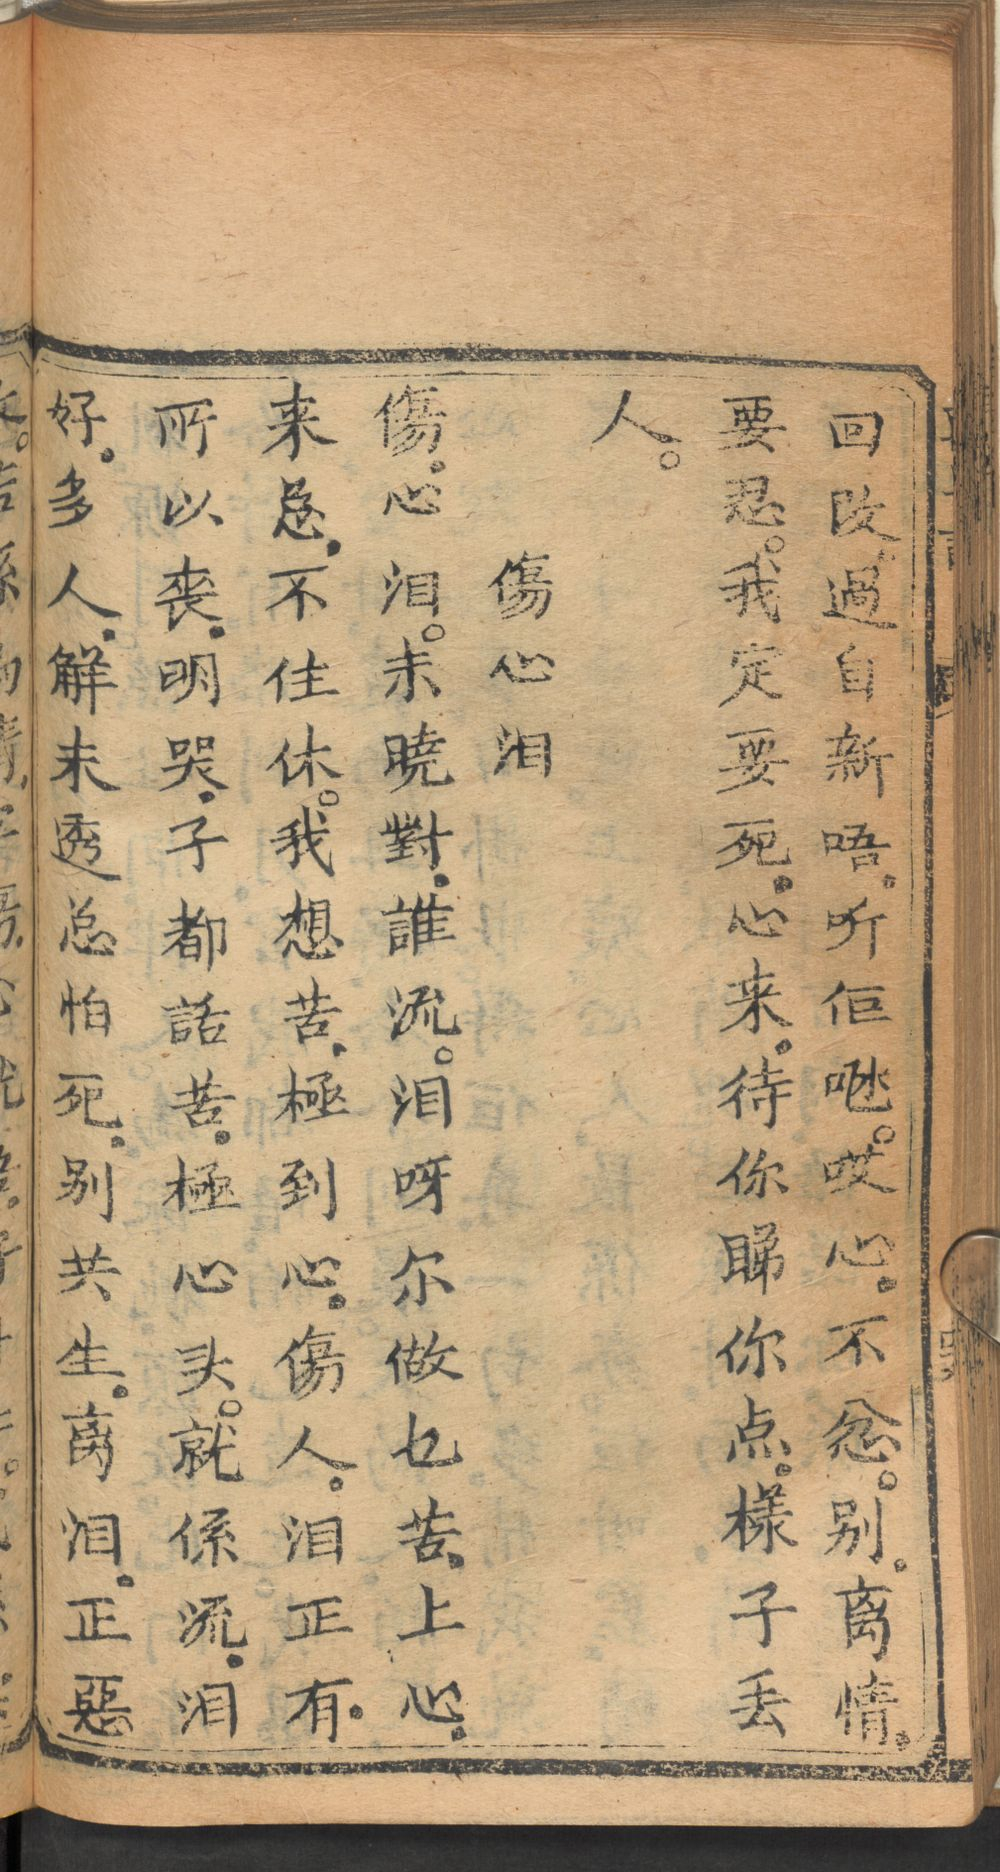 回改過自新唔听佢咝。哎心不忿。别离情
要忍。我定要死心来待你睇你点樣子丢
人。
傷心泪
傷心泪。未曉對誰流。泪呀尔做乜苦上心
来。急不住休。我想苦極到心傷人泪正有
所以喪明哭子都話苦極心头。就係流泪
好多人解未透总怕死别共生离泪正惡